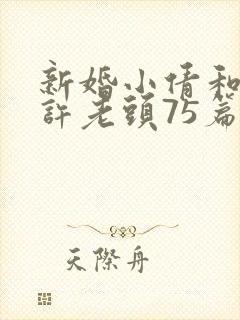 新婚小倩和
許老頭75篇
天際舟